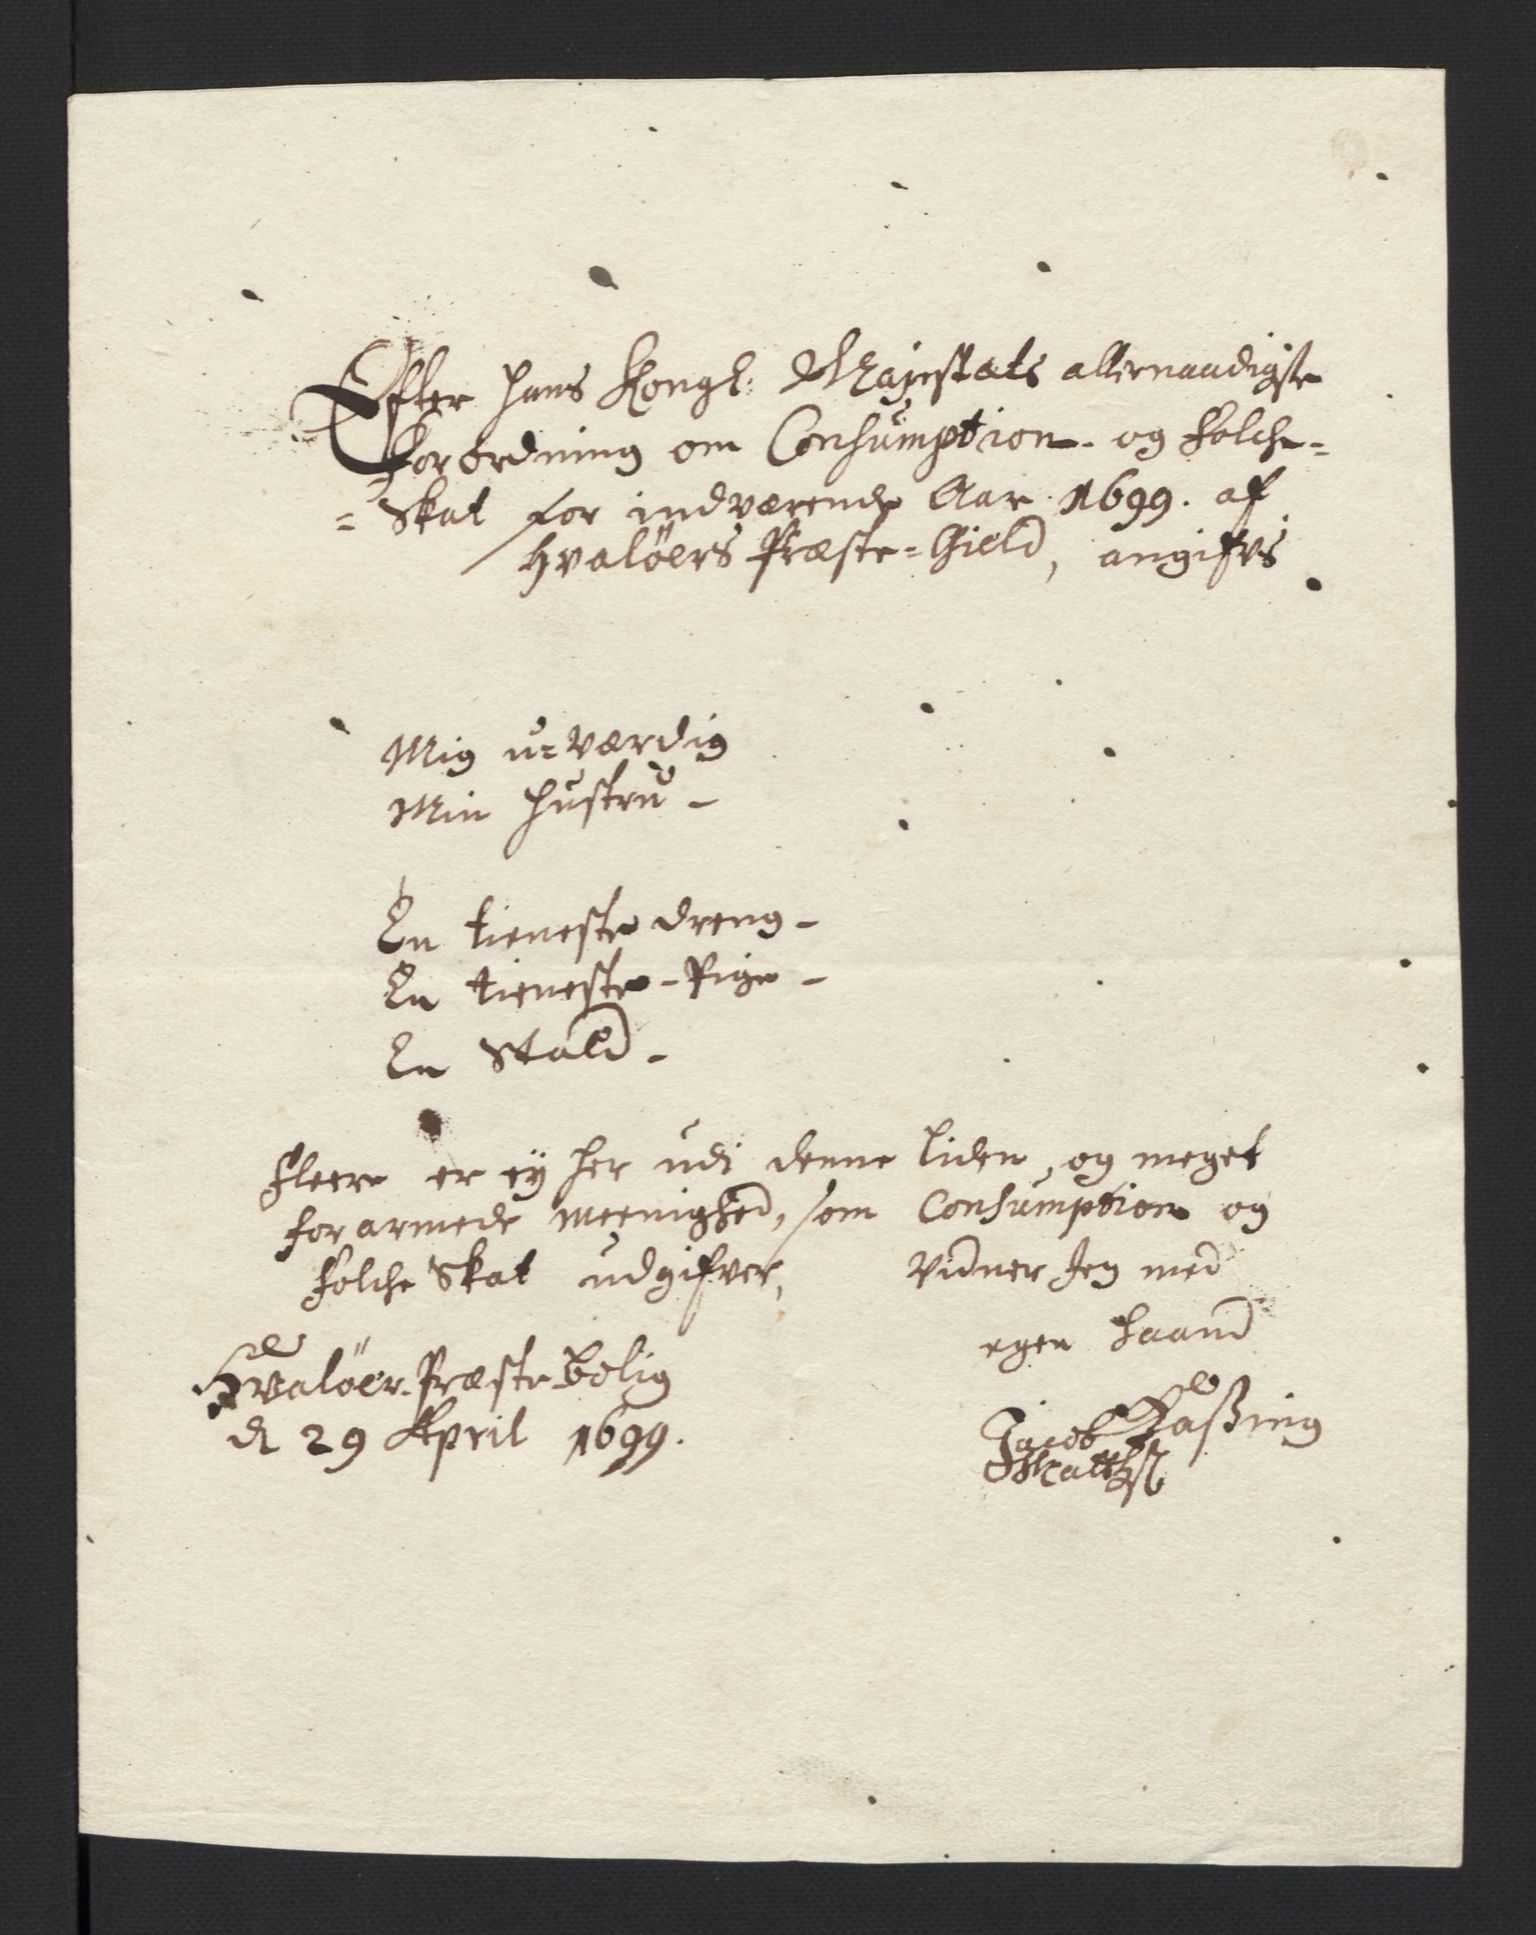 Efter Hans Kongl: Majestæts allernaadigste
Forordning om Consumption- og Folche-
= Skat for indværende Aar 1699. af
Hvalöers Præste-Gield, angifvs
Mig u=værdig
Min Hustru -
En tieneste dreng -
En tieneste-Pige -
En Stald -
Fleere er ey her udi denne liden, og meget
forarmede meenighed, som Consumption og
Folche Skat udgifver, vidner Jeg med
egen Haand
Hvalöer-Præste-bolig
d 29 April 1699.
Jacob
Matthsl